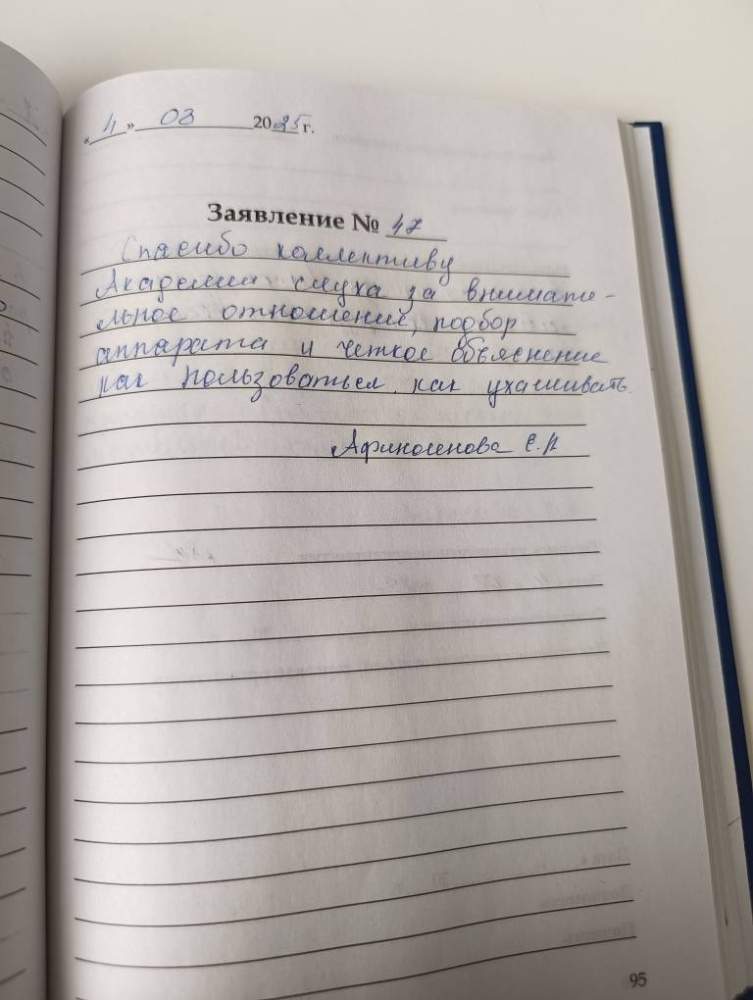 «11» 03 2025 г.
Заявление № 47
Спасибо коллективу
Академии слуха за внимате-
льное отношение, подбор
аппарата и четкое объяснение
как пользоваться, как ухаживать.
Афиногенова Е.И
95